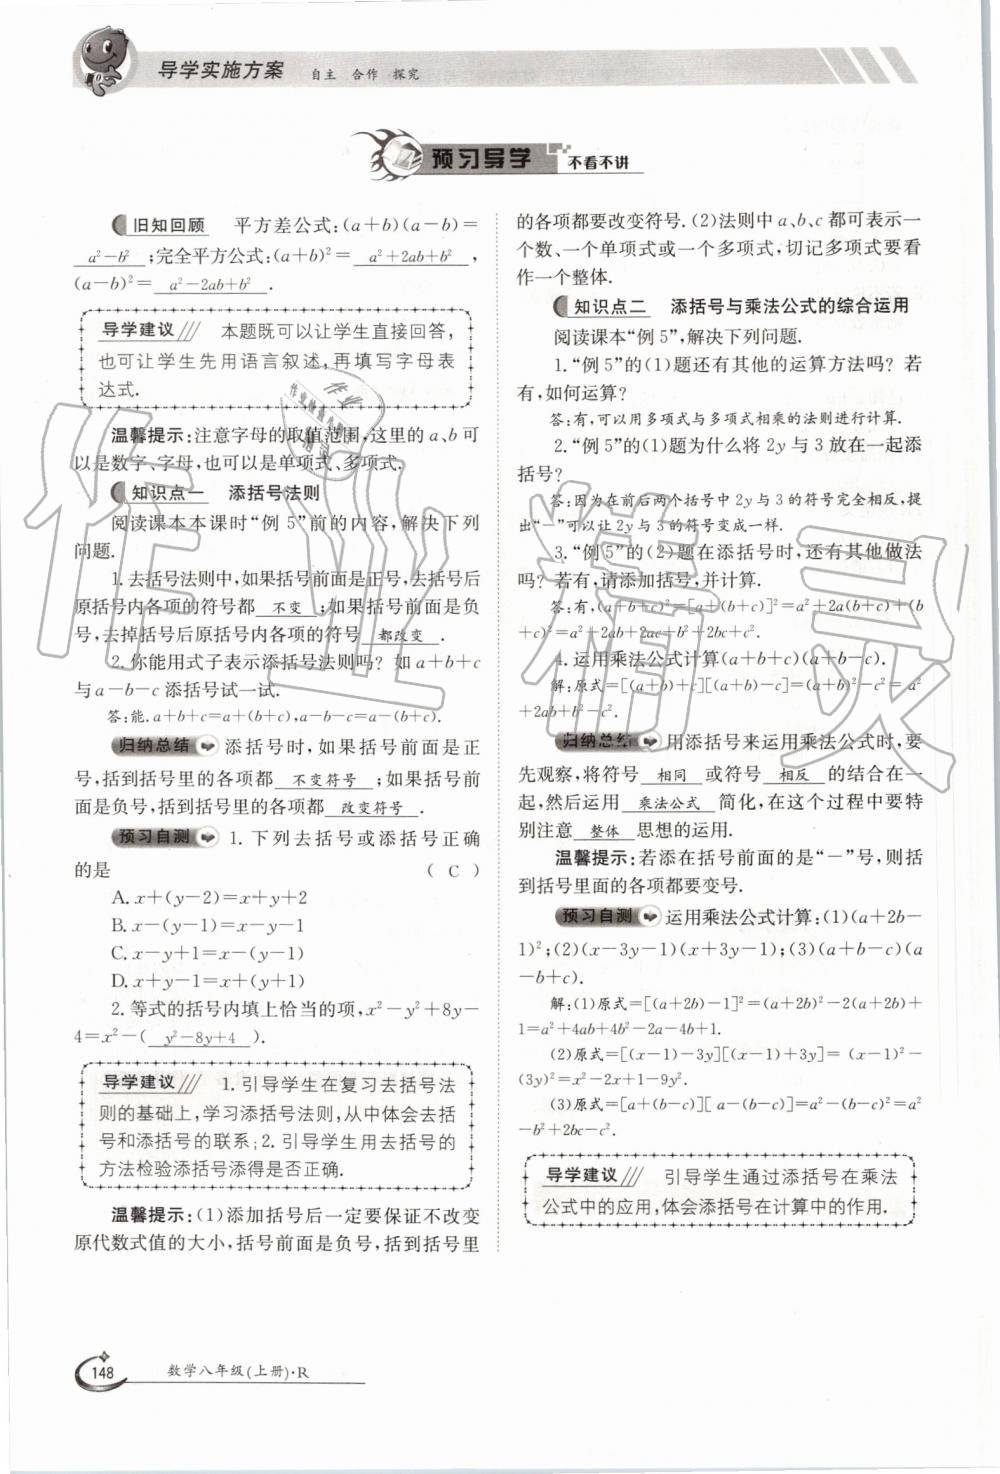 导学实施方案 自主 合作 探究
预习导学 不看不讲
旧知回顾 平方差公式:(a+b)(a-b)=
a²-b² ;完全平方公式:(a+b)²= a²+2ab+b² ,
(a-b)²= a²-2ab+b² .
导学建议/// 本题既可以让学生直接回答,
也可让学生先用语言叙述,再填写字母表
达式.
温馨提示:注意字母的取值范围,这里的a、b可
以是数字、字母,也可以是单项式、多项式.
知识点一 添括号法则
阅读课本本课时“例5”前的内容,解决下列
问题.
1.去括号法则中,如果括号前面是正号,去括号后
原括号内各项的符号都 不变 ;如果括号前面是负
号,去掉括号后原括号内各项的符号 都改变 .
2.你能用式子表示添括号法则吗?如a+b+c
与a-b-c添括号试一试.
答:能.a+b+c=a+(b+c),a-b-c=a-(b+c).
归纳总结 添括号时,如果括号前面是正
号,括到括号里的各项都 不变符号 ;如果括号前
面是负号,括到括号里的各项都 改变符号 .
预习自测 1.下列去括号或添括号正确
的是 ( C )
A.x+(y-2)=x+y+2
B.x-(y-1)=x-y-1
C.x-y+1=x-(y-1)
D.x+y-1=x+(y+1)
2.等式的括号内填上恰当的项,x²-y²+8y-
4=x²-( y²-8y+4 ).
导学建议/// 1.引导学生在复习去括号法
则的基础上,学习添括号法则,从中体会去括
号和添括号的联系;2.引导学生用去括号的
方法检验添括号添得是否正确.
温馨提示:(1)添加括号后一定要保证不改变
原代数式值的大小,括号前面是负号,括到括号里
的各项都要改变符号.(2)法则中a、b、c都可表示一
个数、一个单项式或一个多项式,切记多项式要看
作一个整体.
知识点二 添括号与乘法公式的综合运用
阅读课本“例5”,解决下列问题.
1.“例5”的(1)题还有其他的运算方法吗?若
有,如何运算?
答:有,可以用多项式与多项式相乘的法则进行计算.
2.“例5”的(1)题为什么将2y与3放在一起添
括号?
答:因为在前后两个括号中2y与3的符号完全相反,提
出“-”可以让2y与3的符号变成一样.
3.“例5”的(2)题在添括号时,还有其他做法
吗?若有,请添加括号,并计算.
答:有,(a+b+c)²=[a+(b+c)]²=a²+2a(b+c)+(b
+c)²=a²+2ab+2ac+b²+2bc+c².
4.运用乘法公式计算(a+b+c)(a+b-c).
解:原式=[(a+b)+c][(a+b)-c]=(a+b)²-c²=a²
+2ab+b²-c².
归纳总结 用添括号来运用乘法公式时,要
先观察,将符号 相同 或符号 相反 的结合在一
起,然后运用 乘法公式 简化,在这个过程中要特
别注意 整体 思想的运用.
温馨提示:若添在括号前面的是“-”号,则括
到括号里面的各项都要变号.
预习自测 运用乘法公式计算:(1)(a+2b-
1)²;(2)(x-3y-1)(x+3y-1);(3)(a+b-c)(a
-b+c).
解:(1)原式=[(a+2b)-1]²=(a+2b)²-2(a+2b)+
1=a²+4ab+4b²-2a-4b+1.
(2)原式=[(x-1)-3y][(x-1)+3y]=(x-1)²-
(3y)²=x²-2x+1-9y².
(3)原式=[a+(b-c)][a-(b-c)]=a²-(b-c)²=a²
-b²+2bc-c².
导学建议/// 引导学生通过添括号在乘法
公式中的应用,体会添括号在计算中的作用.
148 数学八年级(上册)·R
作业精灵